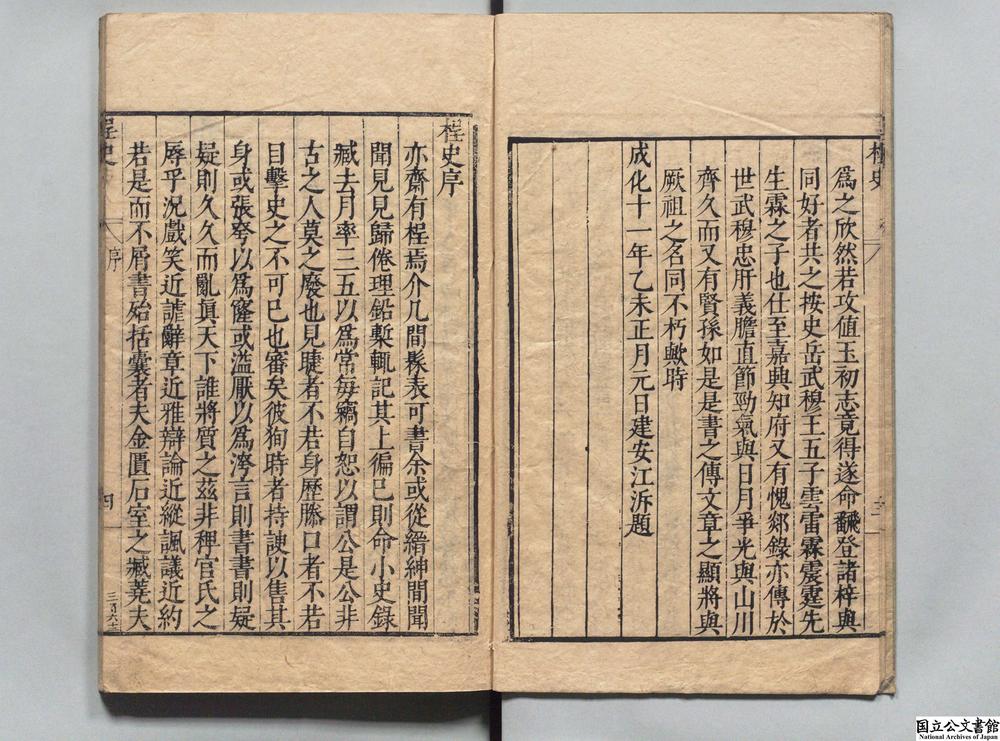 桯史
三
爲之欣然若攻值玉初志竟得遂命翻登諸梓與
同好者共之按史岳武穆王五子雲雷霖震霆先
生霖之子也仕至嘉興知府又有愧郯錄亦傳於
世武穆忠肝義膽直節勁氣與日月爭光與山川
齊久而又有賢孫如是是書之傳文章之顯將與
厥祖之名同不朽歟時
成化十一年乙未正月元日建安江泝題
桯史序
亦齋有桯焉介几間髹表可書余或從縉紳間聞
聞見見歸倦理鉛槧輒記其上徧已則命小史錄
臧去月率三五以爲常每竊自恕以謂公是公非
古之人莫之廢也見睫者不若身歷滕口者不若
目擊史之不可已也審矣彼狥時者持諛以售其
身或張夸以爲窿或溢厭以爲洿言則書書則疑
疑則久久而亂眞天下誰將質之茲非稗官氏之
辱乎況戲笑近謔辭章近雅辯論近縱諷議近約
若是而不屑書殆括囊者夫金匱石室之臧蕘夫
桯史
序
四